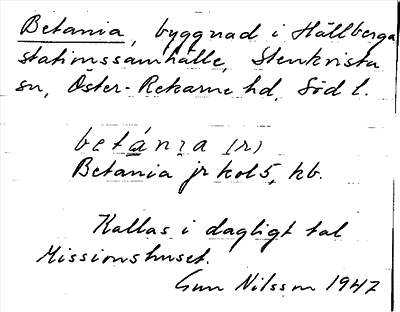 Betania, byggnad i Hällberga
stationssamhälle, Stenkvista
sn, Öster-Rekarne hd, Söd l.
betánia (r)
Betania jrkol5, kb.
Kallas i dagligt tal
Missionshuset.
Gun Nilsson 1947